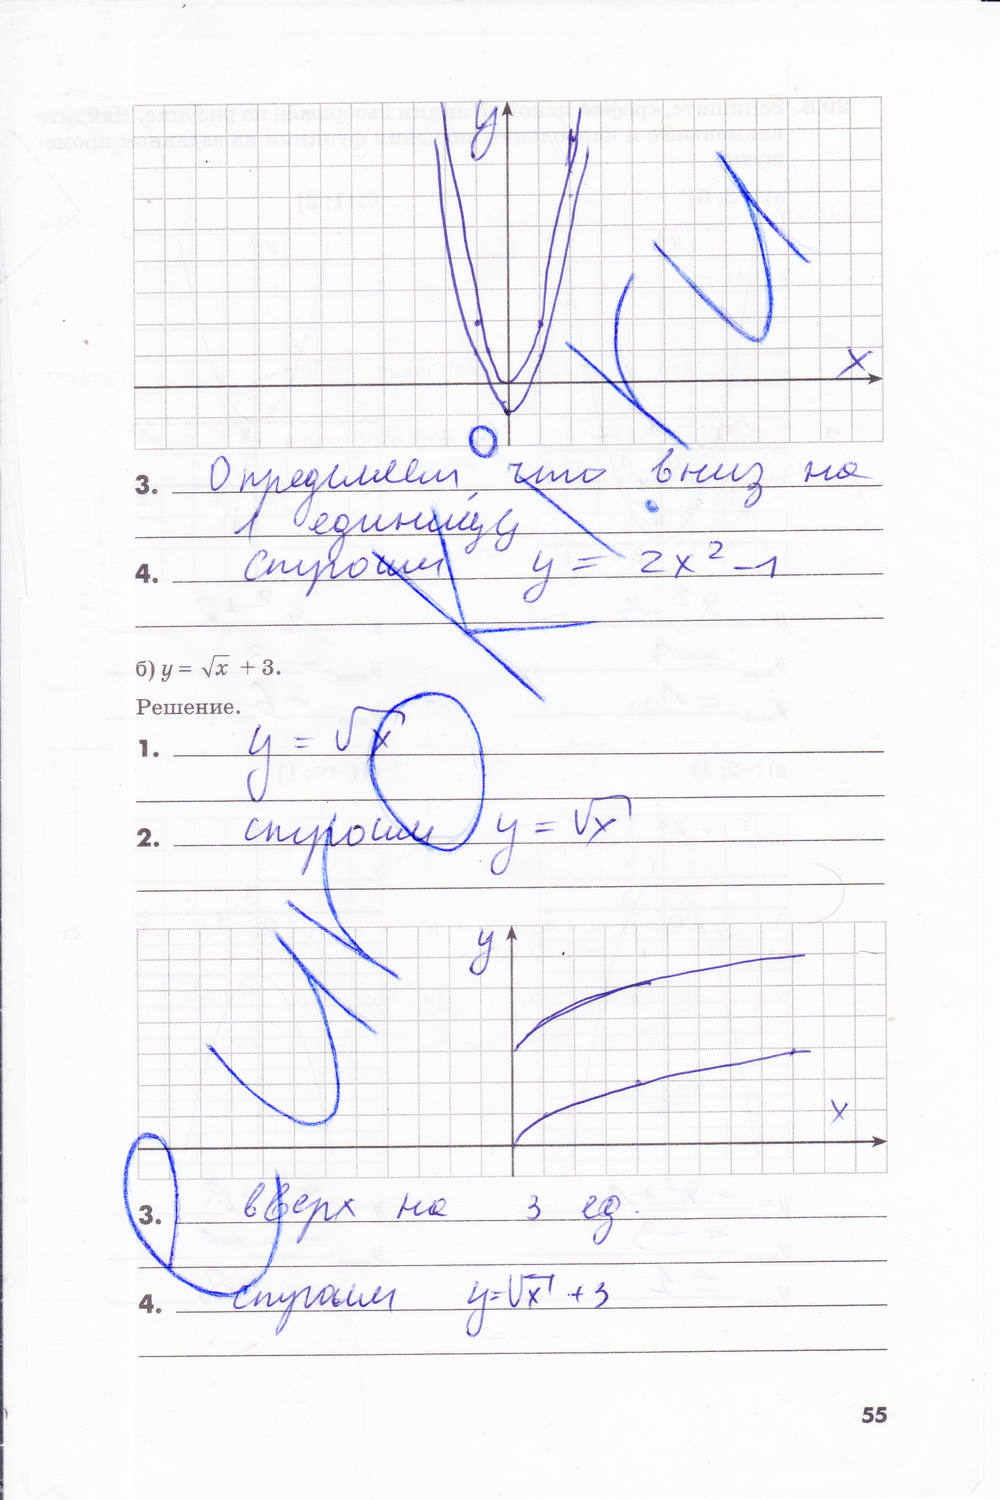 y
x
3. Определяем, что вниз на
1 единицу
4. Строим y = 2x² - 1
б) y = √x + 3.
Решение.
1. y = √x
2. строим y = √x
y
x
3. вверх на 3 ед.
4. строим y = √x + 3
55